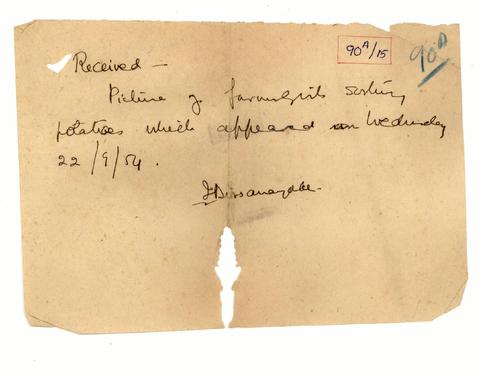 90A/15
90A
Received —
Picture of farmgirls sorting
potatoes which appeared on Wednesday
22/9/54.
Dissanayake.